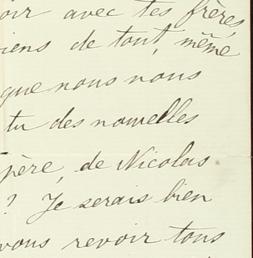 oir avec tes frères,
iens de tout, même
que nous nous
tu des nouvelles
père, de Nicolas
? Je serais bien
vous revoir tous